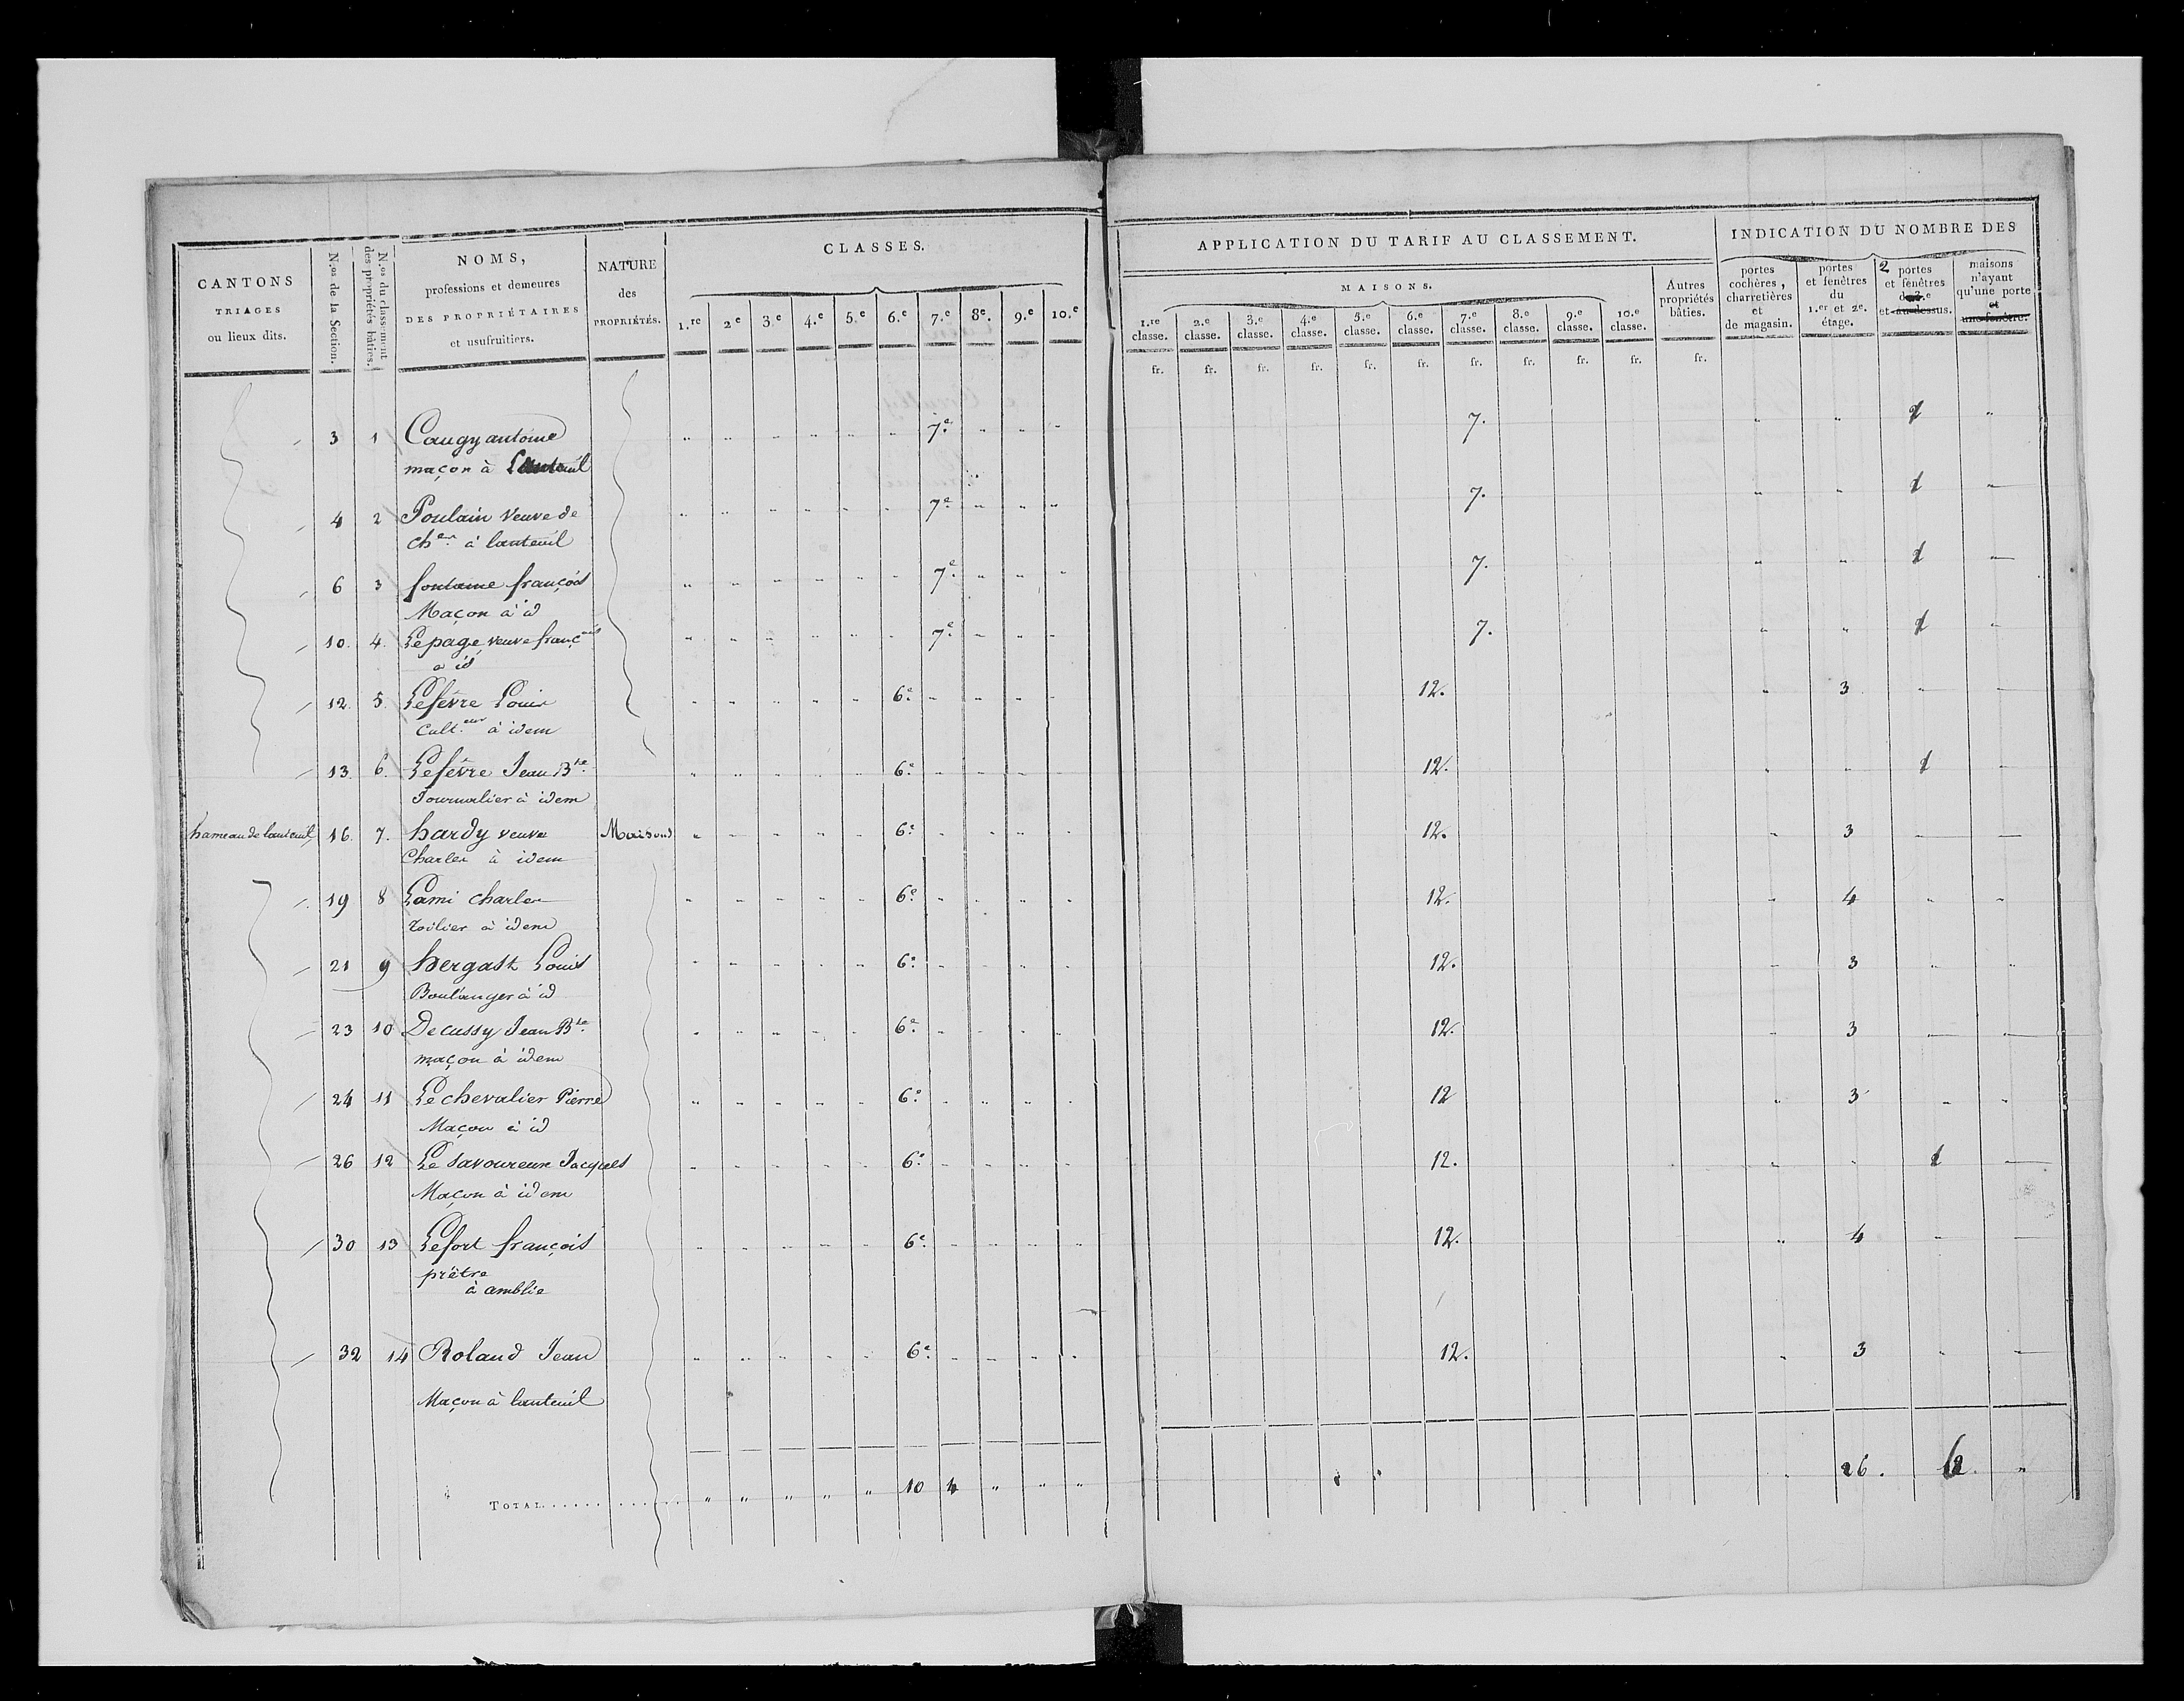 CANTONS
TRIAGES
ou lieux dits.
N.os de la Section.
N.os du classement
des propriétés bâties.
NOMS,
professions et demeures
DES PROPRIÉTAIRES
et usufruitiers.
NATURE
des
PROPRIÉTÉS.
CLASSES.
1.re 2e 3.e 4.e 5.e 6.e 7.e 8e. 9.e 10.e
APPLICATION DU TARIF AU CLASSEMENT.
MAISONS.
1.re classe. 2.e classe. 3.e classe. 4.e classe. 5.e classe. 6.e classe. 7.e classe. 8.e classe. 9.e classe. 10.e classe.
Autres
propriétés
bâties.
fr. fr. fr. fr. fr. fr. fr. fr. fr. fr. fr.
INDICATION DU NOMBRE DES
portes
cochères,
charretières
et
de magasin.
portes
et fenêtres
du
1.er et 2e.
étage.
2 portes
et fenêtres
et au-dessus.
maisons
n'ayant
qu'une porte
et
une fenêtre.
3 1 Caugy antoine 7e. 7.
maçon à Lanteuil
4 2 Poulain veuve de 7e. 7.
Ch.er à lanteuil
6 3 fontaine françois 7e. 7.
Maçon à id
10. 4. Lepage veuve franç.ois 7e. 7.
a id
12. 5. Lefèvre Louis 6e. 12. 3
Cult.eur à idem
13. 6. Lefèvre Jean B.te 6e. 12.
Journalier à idem
hameau de lanteuil 16. 7. hardy veuve Maisons 6e. 12. 3
Charles à idem
19 8 Lami charles 6e. 12. 4
Toilier à idem
21 9 hergast Louis 6e. 12. 3
Boulanger à id
23 10 Decussy Jean B.te 6e. 12. 3
maçon à idem
24 11 Le chevalier Pierre 6e. 12 3
Maçon à id
26 12 Le Savoureux Jacques 6e. 12.
Maçon à idem
30 13 Lefort françois 6e. 12. 4
prêtre
à amblie
32 14 Roland Jean 6e. 12. 3
Maçon à lanteuil
TOTAL............ " " " " " 10 4 " " " 26. "